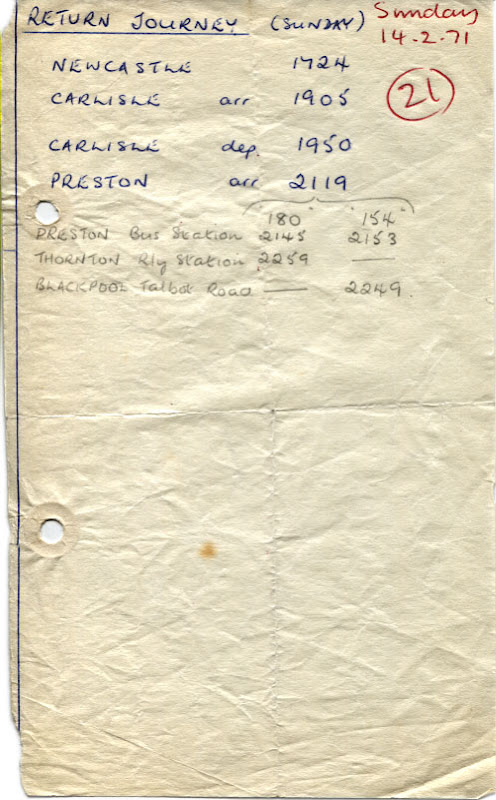 RETURN JOURNEY (SUNDAY)
Sunday
14.2.71
21
NEWCASTLE 1724
CARLISLE arr 1905
CARLISLE dep. 1950
PRESTON arr 2119
180 154
PRESTON Bus Station 2145 2153
THORNTON Rly Station 2259 —
BLACKPOOL Talbot Road — 2249.